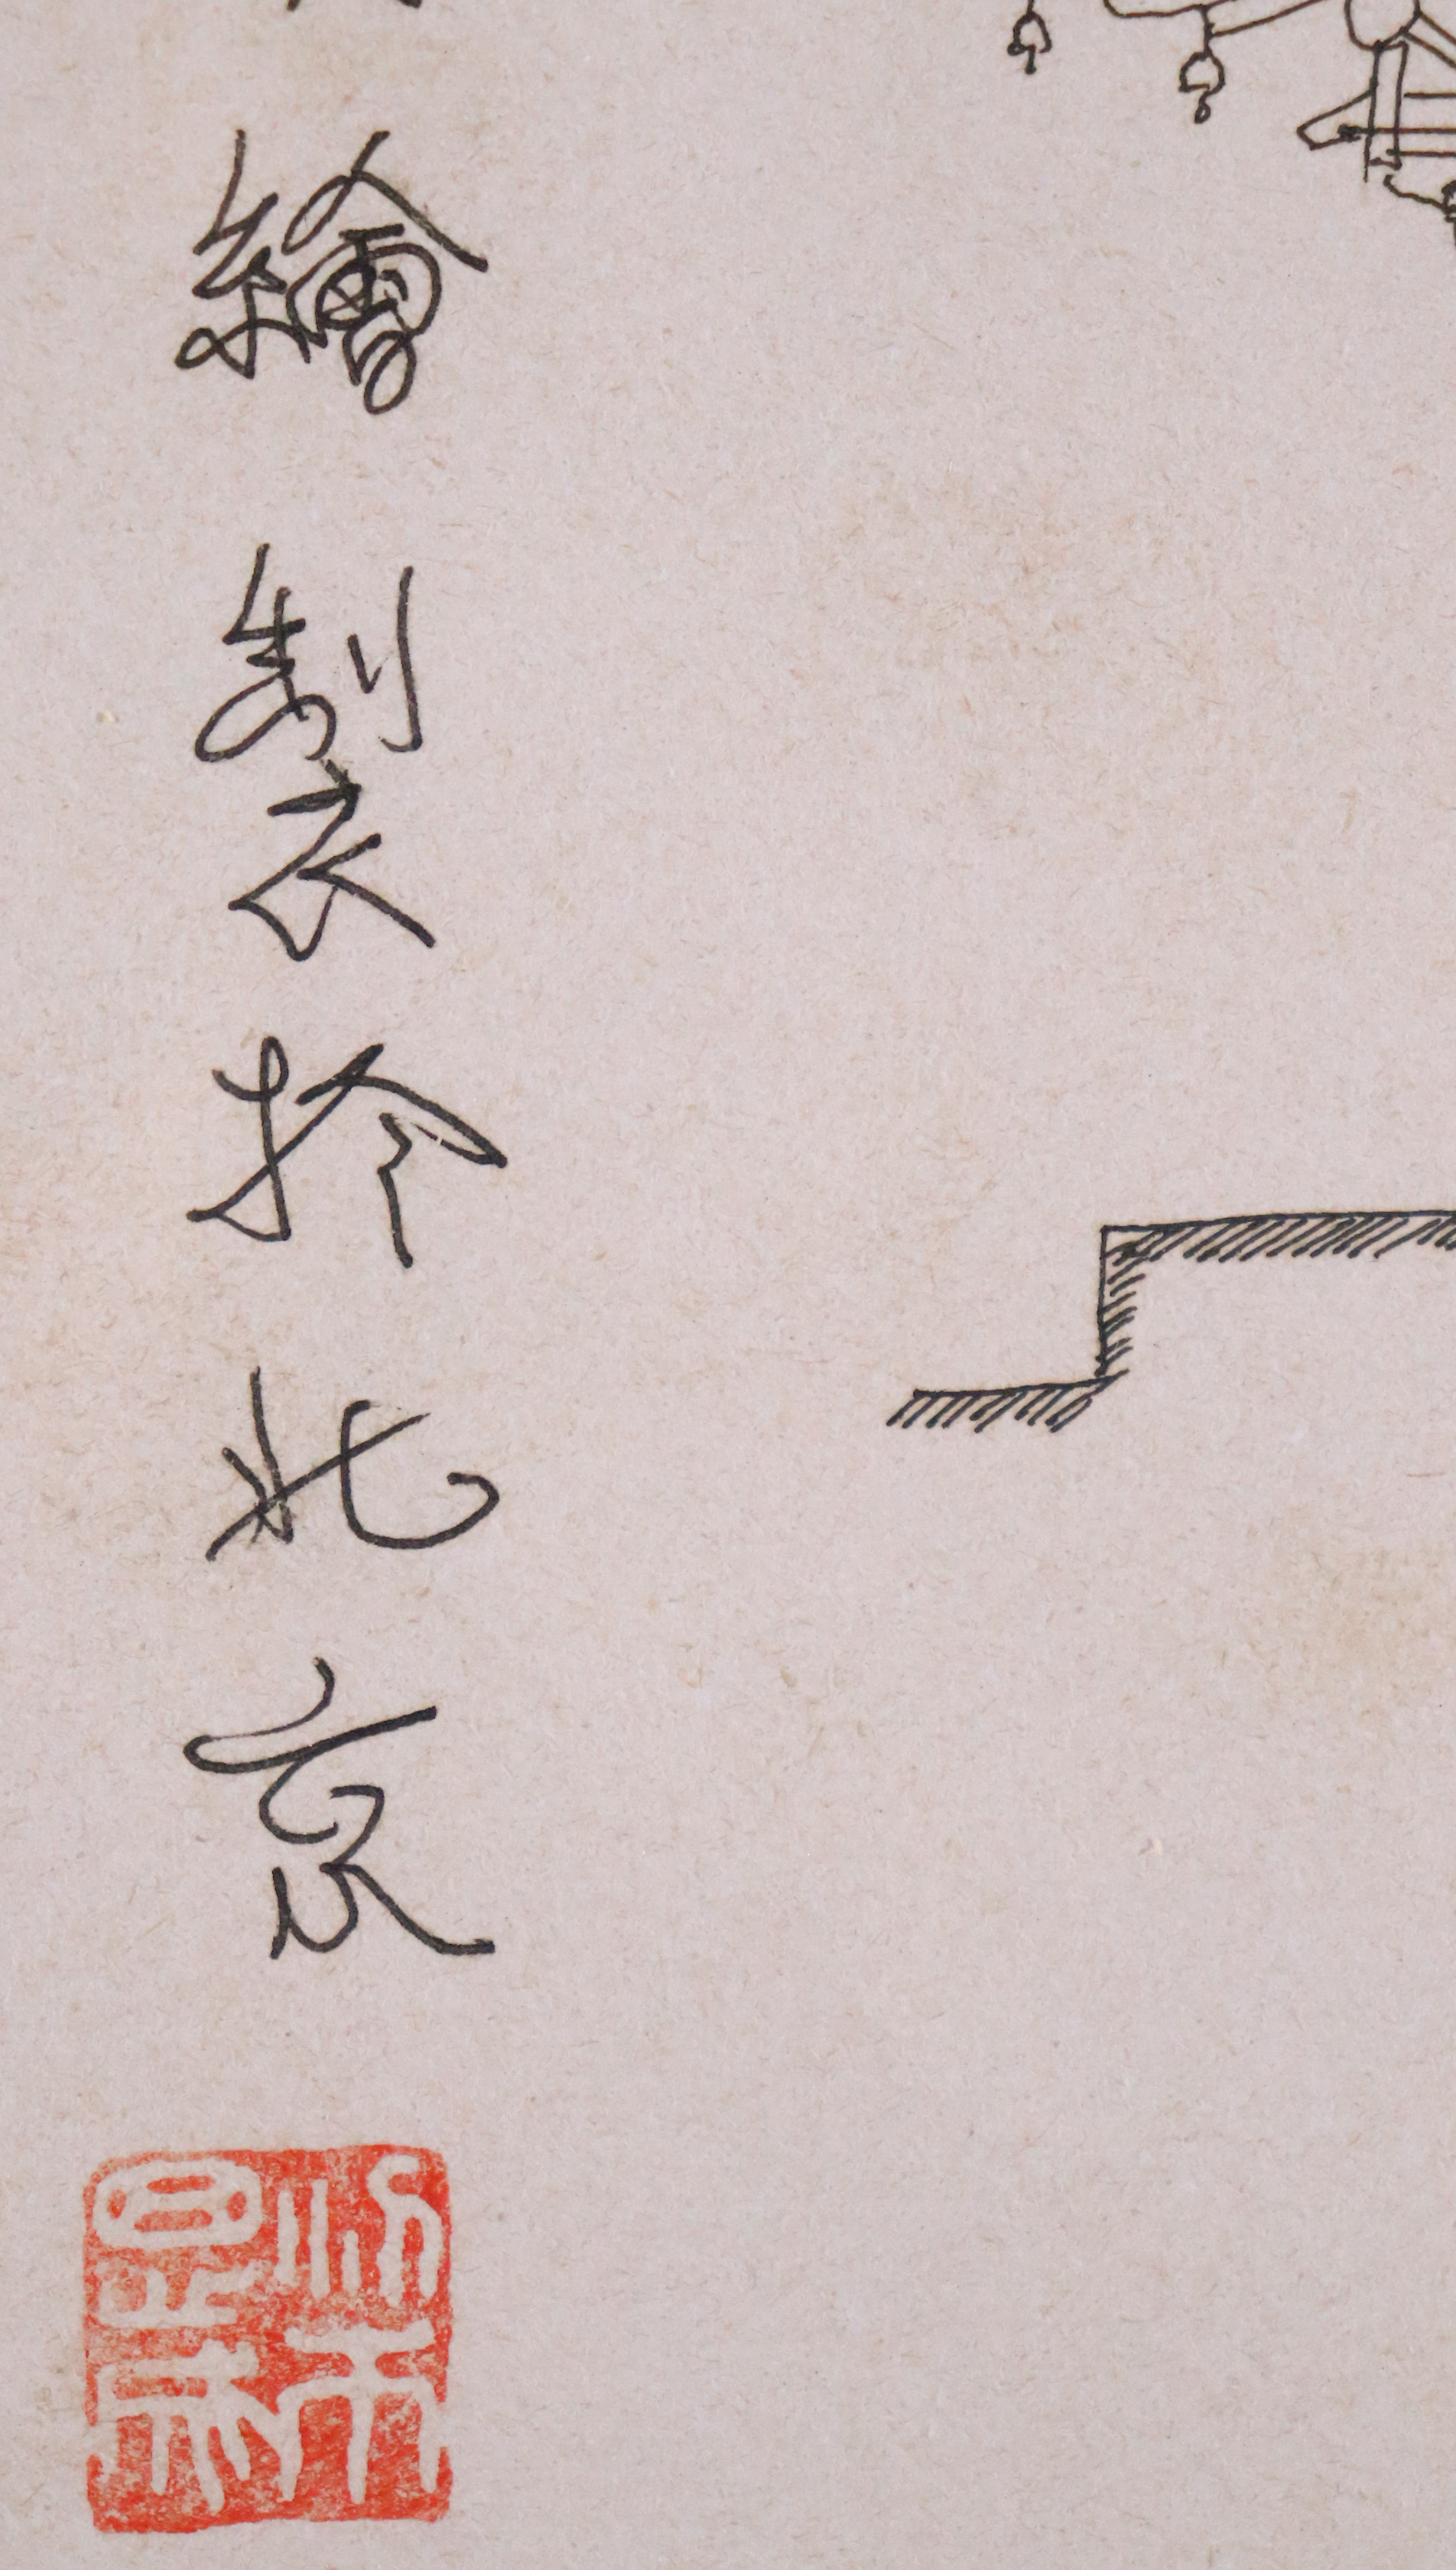 繪製扵北京